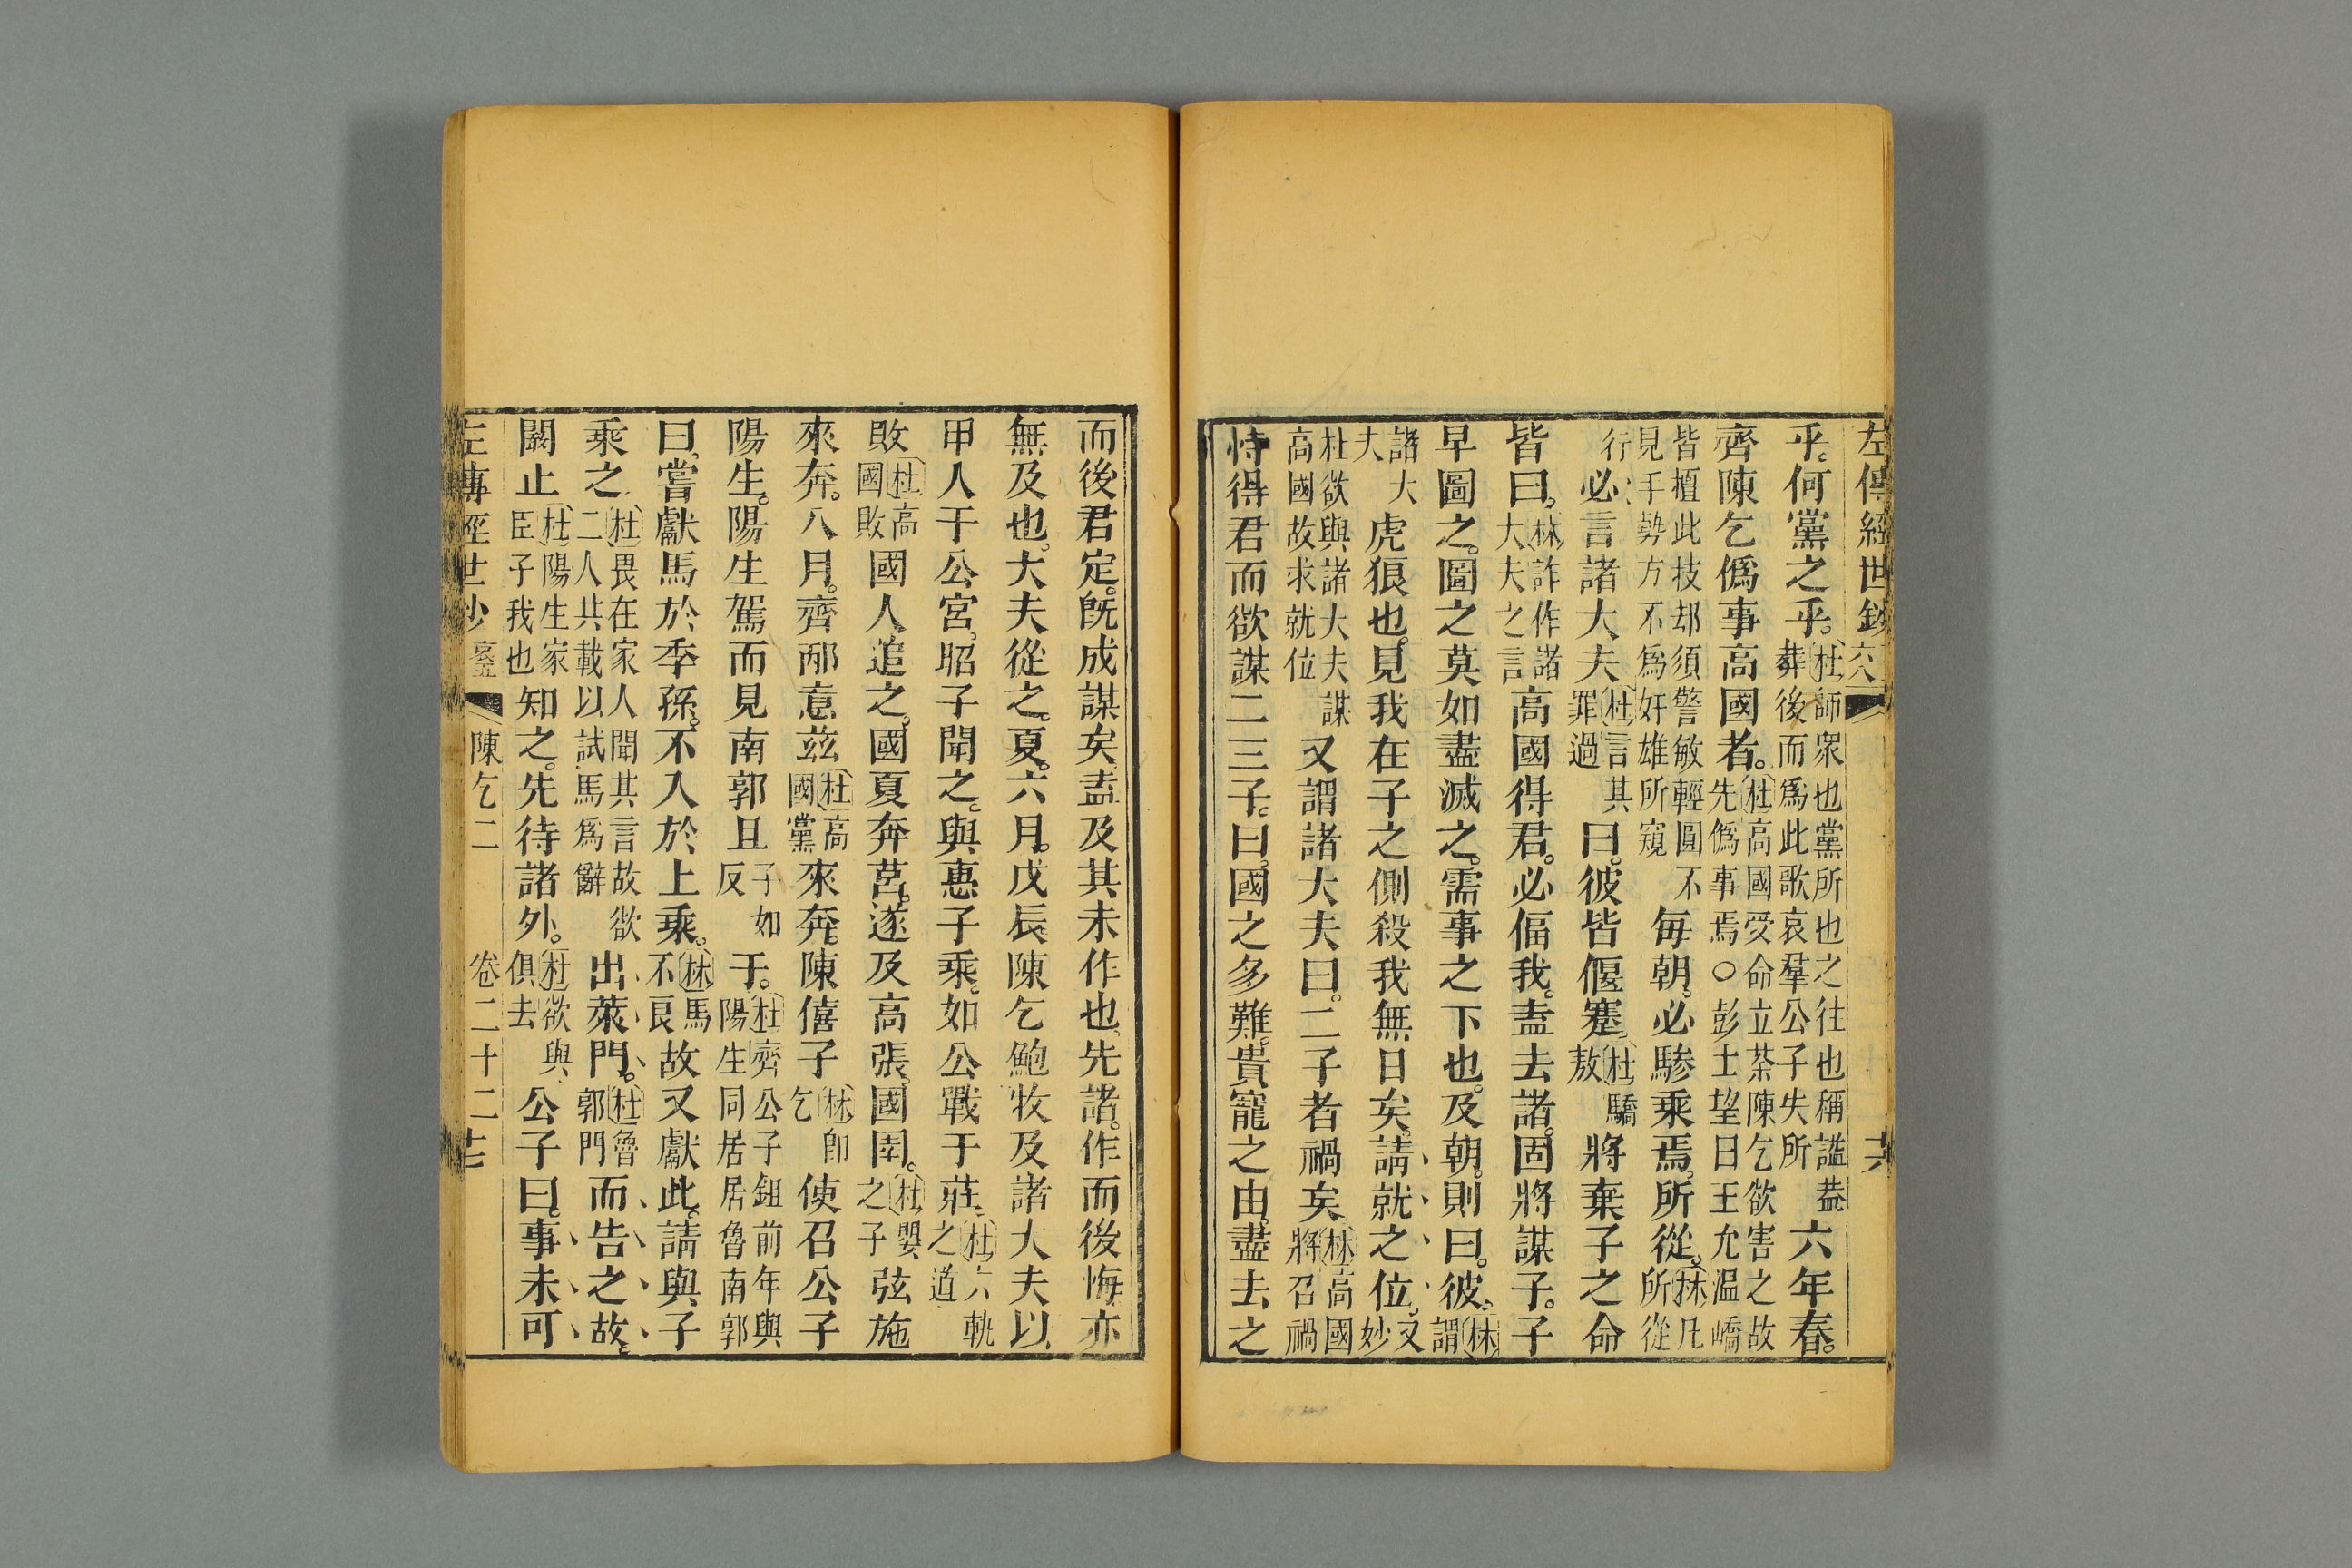 左傳經世鈔
乎。何黨之乎。杜師眾也黨所也之往也稱謚葢葬後而爲此歌哀羣公子失所六年春。
齊陳乞僞事高國者。杜高國受命立荼陳乞欲害之故先僞事焉○彭士望曰王允温嶠
皆櫃此技却須警敏輕圓不見手勢方不爲奸雄所窺每朝。必驂乘焉。所從。林凡所從
行必言諸大夫杜言其罪過曰。彼皆偃蹇。杜驕敖將棄子之命
皆曰。林詐作諸大夫之言高國得君。必偪我。盍去諸。固將謀子。子
早圖之。圖之莫如盡滅之。需事之下也。及朝。則曰。彼。林謂
諸大夫虎狼也。見我在子之側殺我無日矣。請就之位。又妙
杜欲與諸大夫謀高國故求就位又謂諸大夫曰。二子者禍矣林高國將召禍
恃得君而欲謀二三子。曰。國之多難。貴寵之由。盡去之
而後君定。旣成謀矣。盍及其未作也。先諸。作而後悔。亦
無及也。大夫從之。夏。六月。戊辰。陳乞鮑牧及諸大夫以
甲人于公宮。昭子聞之。與惠子乘。如公戰于莊。杜六軌之道
敗杜高國敗國人追之。國夏奔莒。遂及高張。國圉。杜嬰之子弦施
來奔。八月。齊邴意兹杜高國黨來奔。陳僖子林即乞使召公子
陽生。陽生駕而見南郭且子如反于。杜齊公子鉏前年與陽生同居居魯南郭
曰。嘗獻馬於季孫。不入於上乘。林馬不良故又獻此。請與子
乘之杜畏在家人聞其言故欲二人共載以試馬爲辭出萊門。杜魯郭門而告之故。
闞止杜陽生家臣子我也知之。先待諸外。杜欲與俱去公子曰。事未可
左傳經世鈔 陳乞二 卷二十二